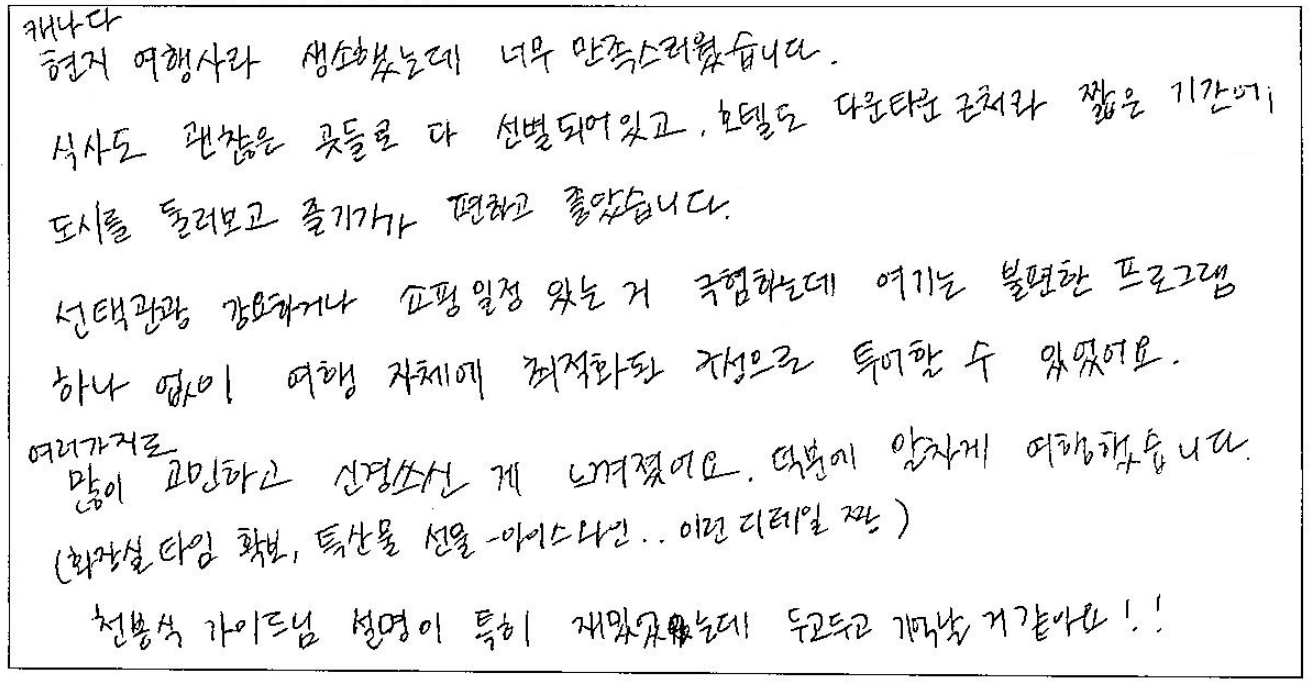 캐나다
현지 여행사라 생소했는데 너무 만족스러웠습니다.
식사도 괜찮은 곳들로 다 선별되어있고, 호텔도 다운타운 근처라 짧은 기간에
도시를 둘러보고 즐기기가 편하고 좋았습니다.
선택관광 강요하거나 쇼핑일정 있는 거 극혐하는데 여기는 불편한 프로그램
하나 없이 여행 자체에 최적화된 구성으로 투어할 수 있었어요.
여러가지로
많이 고민하고 신경쓰신 게 느껴졌어요. 덕분에 알차게 여행했습니다.
(화장실 타임 확보, 특산물 선물-아이스와인.. 이런 디테일 짱)
천봉식 가이드님 설명이 특히 재밌었는데 두고두고 기억날 거 같아요!!